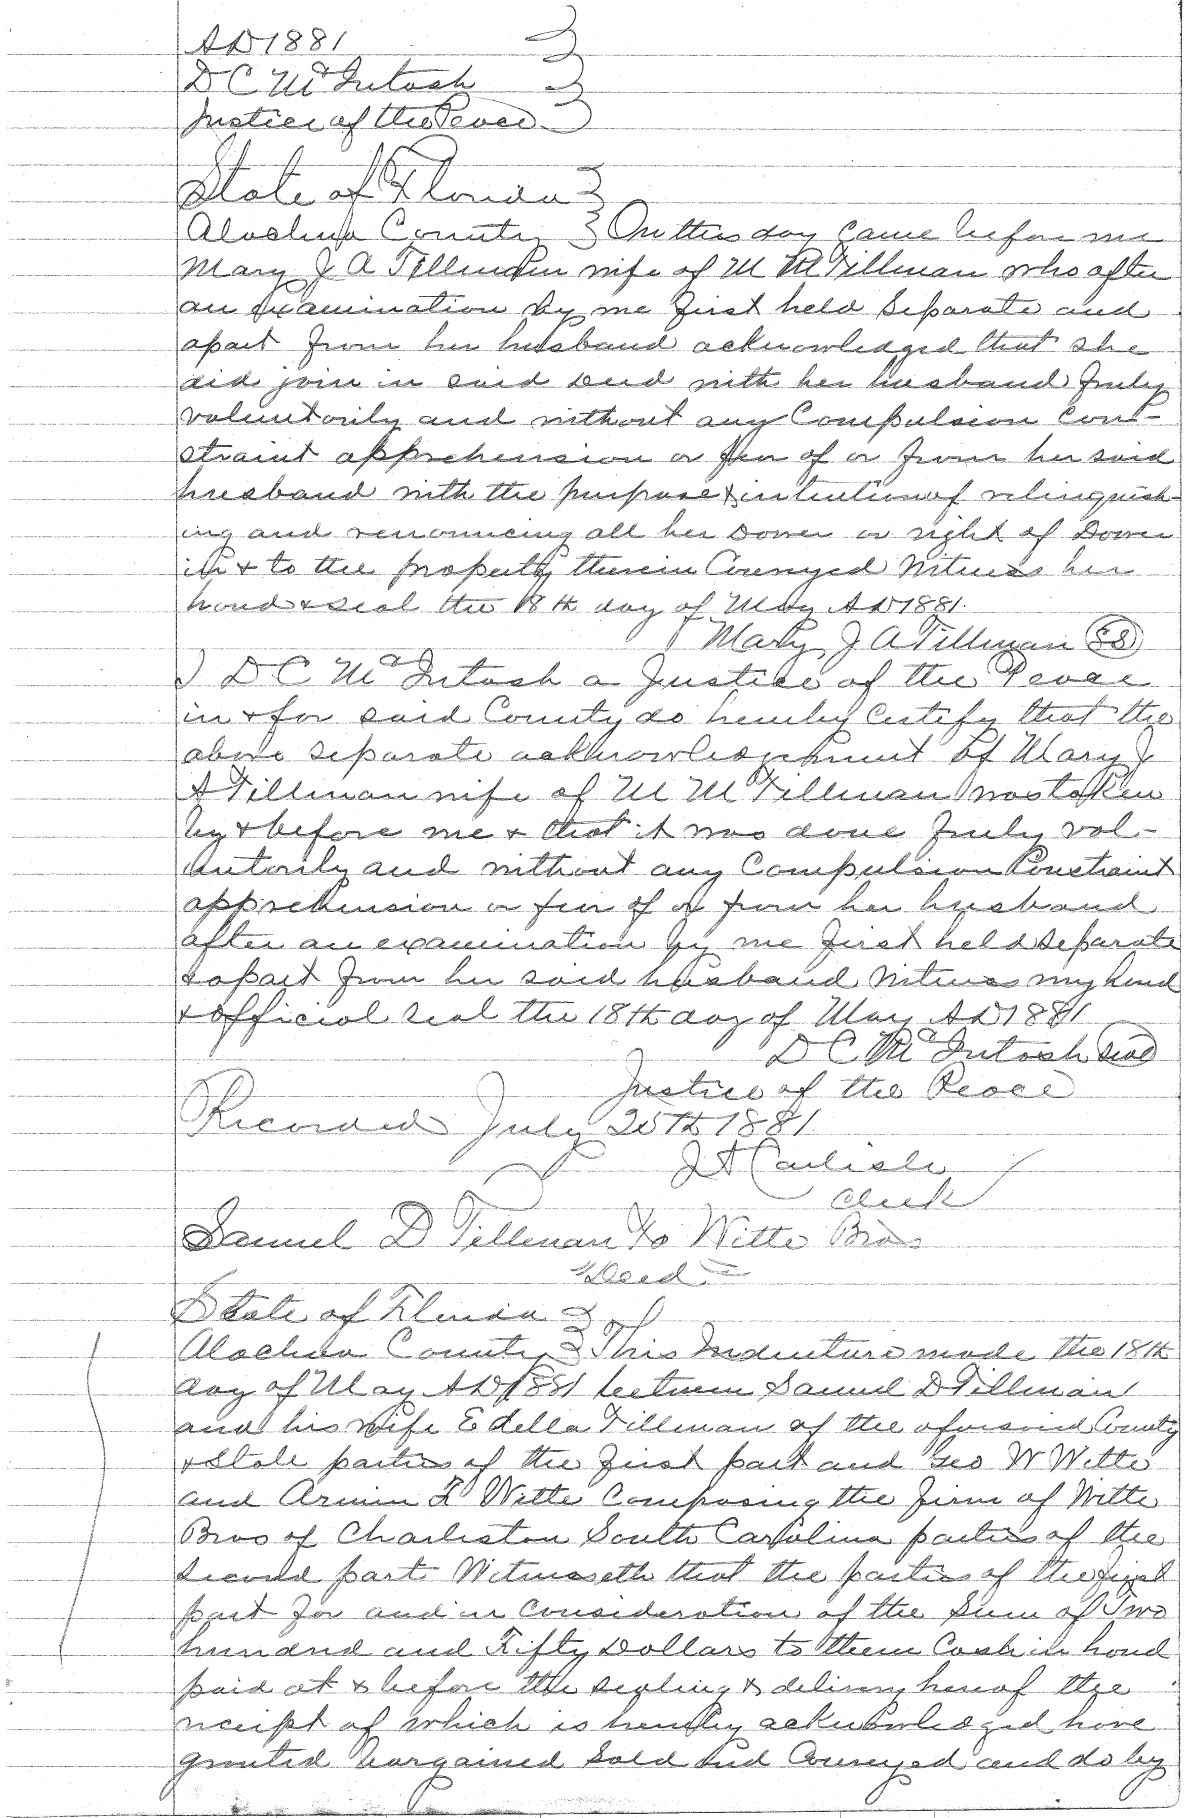 AD 1881
D C McIntosh
Justice of the Peace
State of Florida
Alachua County On this day came before me
Mary J A Tillman wife of M M Tillman who after
an examination by me first held Separate and
apart from her husband acknowledged that she
did join in said Deed with her husband freely
voluntarily and without any Compulsion Con-
straint apprehension or fear of or from her said
husband with the purpose & intention of relinquish-
ing and renouncing all her Dower or right of Dower
in & to the property therein Conveyed Witness her
hand & seal the 18th day of May AD 1881.
Mary J A Tillman
I D C McIntosh a Justice of the Peace
in & for said County do hereby Certify that the
above separate acknowledgement of Mary J
A Tillman wife of M M Tillman was taken
by & before me & that it was done freely vol-
untarily and without any Compulsion Constraint
apprehension or fear of or from her husband
after an examination by me first held separate
& apart from her said husband Witness my hand
& official seal the 18th day of May AD 1881
D C McIntosh Seal
Justice of the Peace
Recorded July 25th 1881
J A Carlisle
Clerk
Samuel D Tillman to Witte Bros
Deed
State of Florida
Alachua County This Indenture made the 18th
day of May AD 1881 between Samuel D Tillman
and his wife Edella Tillman of the aforesaid County
& State parties of the first part and Geo W Witte
and Armin F Witte Composing the firm of Witte
Bros of Charleston South Carolina parties of the
second part Witnesseth that the parties of the first
part for and in consideration of the Sum of Two
hundred and Fifty Dollars to them Cash in hand
paid at & before the sealing & delivery hereof the
receipt of which is hereby acknowledged have
granted bargained Sold and Conveyed and do by